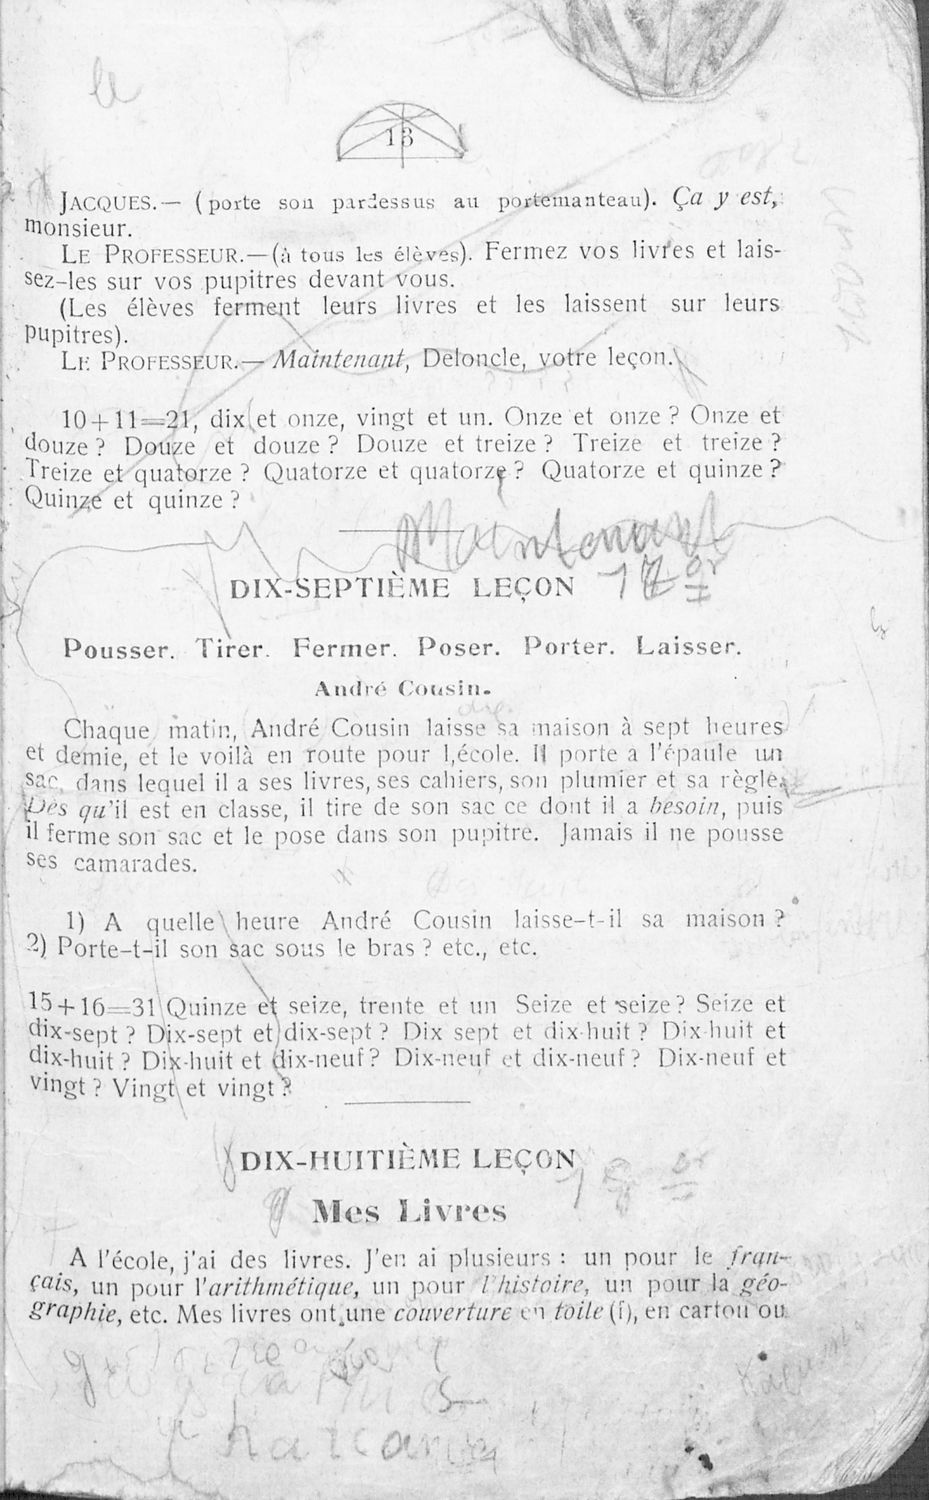 le
18
JACQUES.— (porte son pardessus au portemanteau). Ça y est,
monsieur.
LE PROFESSEUR.—(à tous les élèves). Fermez vos livres et lais-
sez-les sur vos pupitres devant vous.
(Les élèves ferment leurs livres et les laissent sur leurs
pupitres).
LE PROFESSEUR.— Maintenant, Deloncle, votre leçon.
10+11=21, dix et onze, vingt et un. Onze et onze ? Onze et
douze ? Douze et douze ? Douze et treize ? Treize et treize ?
Treize et quatorze ? Quatorze et quatorze ? Quatorze et quinze ?
Quinze et quinze ?
Maintenant
DIX-SEPTIÈME LEÇON 17
Pousser. Tirer. Fermer. Poser. Porter. Laisser.
André Cousin.
Chaque matin, André Cousin laisse sa maison à sept heures
et demie, et le voilà en route pour l,école. Il porte a l'épaule un
sac, dans lequel il a ses livres, ses cahiers, son plumier et sa règle.
Dès qu'il est en classe, il tire de son sac ce dont il a besoin, puis
il ferme son sac et le pose dans son pupitre. Jamais il ne pousse
ses camarades.
1) A quelle heure André Cousin laisse-t-il sa maison ?
2) Porte-t-il son sac sous le bras ? etc., etc.
15+16=31 Quinze et seize, trente et un Seize et seize ? Seize et
dix-sept ? Dix-sept et dix-sept ? Dix sept et dix-huit ? Dix-huit et
dix-huit ? Dix-huit et dix-neuf ? Dix-neuf et dix-neuf ? Dix-neuf et
vingt ? Vingt et vingt ?
DIX-HUITIÈME LEÇON
Mes Livres
A l'école, j'ai des livres. J'en ai plusieurs : un pour le fran-
çais, un pour l'arithmétique, un pour l'histoire, un pour la géo-
graphie, etc. Mes livres ont une couverture en toile (1), en carton ou